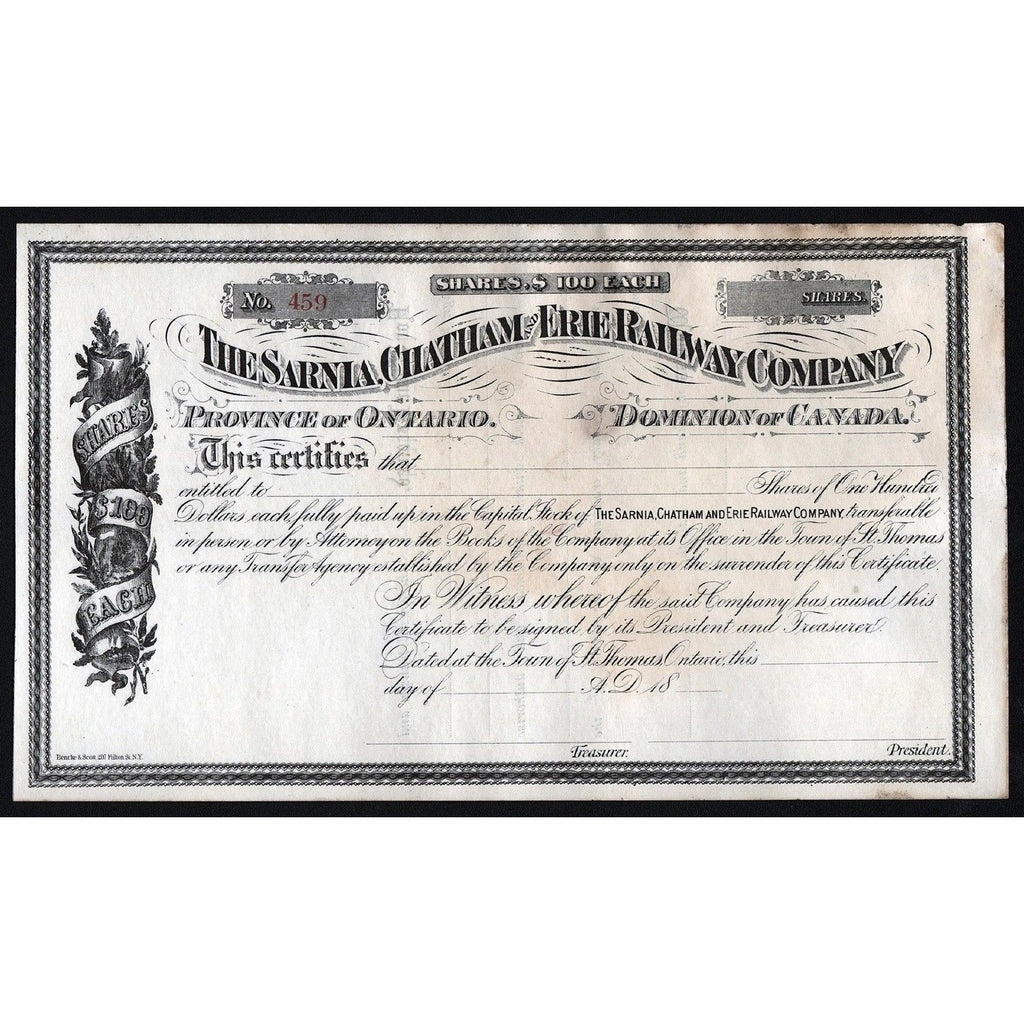 No. 459
SHARES, $ 100 EACH
SHARES.
THE SARNIA, CHATHAM AND ERIE RAILWAY COMPANY
PROVINCE OF ONTARIO. DOMINION OF CANADA.
SHARES
$100
EACH
This certifies that
entitled to Shares of One Hundred
Dollars each, fully paid up in the Capital Stock of THE SARNIA, CHATHAM AND ERIE RAILWAY COMPANY, transferable
in person or by Attorney on the Books of the Company at its Office in the Town of St. Thomas
or any Transfer Agency established by the Company only on the surrender of this Certificate.
In Witness whereof the said Company has caused this
Certificate to be signed by its President and Treasurer.
Dated at the Town of St. Thomas, Ontario, this
day of A.D. 18
Treasurer. President.
& Scott 207 Fulton St. N.Y.